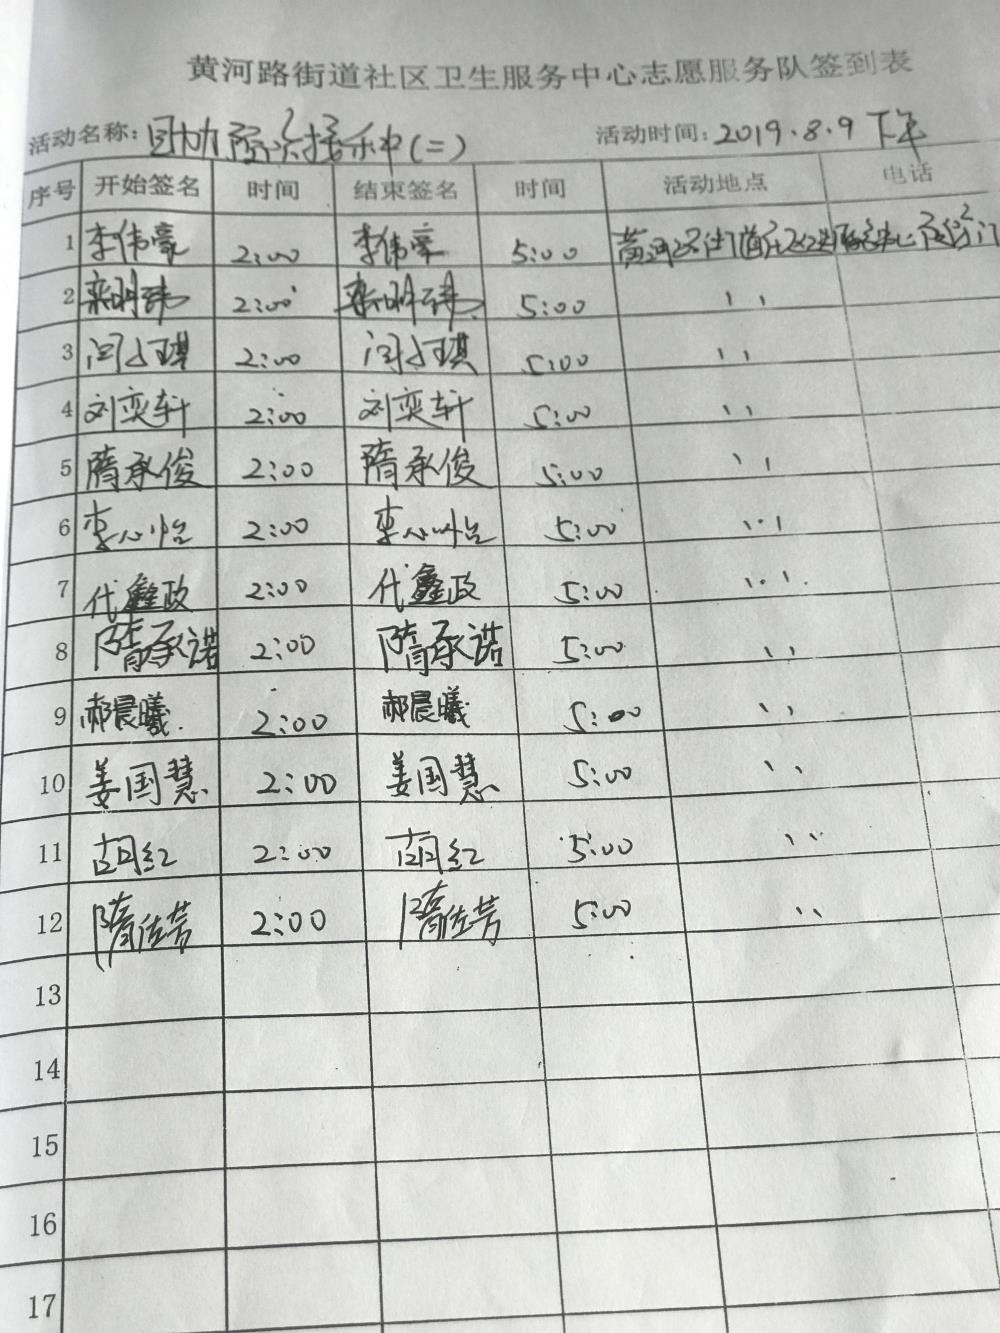 黄河路街道社区卫生服务中心志愿服务队签到表
活动名称: 协助预防接种(二) 活动时间: 2019.8.9 下午
序号 开始签名 时间 结束签名 时间 活动地点 电话
1 李伟豪 2:00 李伟豪 5:00 黄河路街道社区卫生服务中心
2 栾明玮 2:00 栾明玮 5:00 〃
3 闫 琪 2:00 闫 琪 5:00 〃
4 刘奕轩 2:00 刘奕轩 5:00 〃
5 隋承俊 2:00 隋承俊 5:00 〃
6 李心怡 2:00 李心怡 5:00 〃
7 代鑫政 2:00 代鑫政 5:00 〃
8 隋承诺 2:00 隋承诺 5:00 〃
9 郝晨曦 2:00 郝晨曦 5:00 〃
10 姜国慧 2:00 姜国慧 5:00 〃
11 胡红 2:00 胡红 5:00 〃
12 隋佐芳 2:00 隋佐芳 5:00 〃
13
14
15
16
17